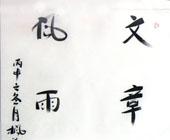 文章
风雨
丙申之冬月